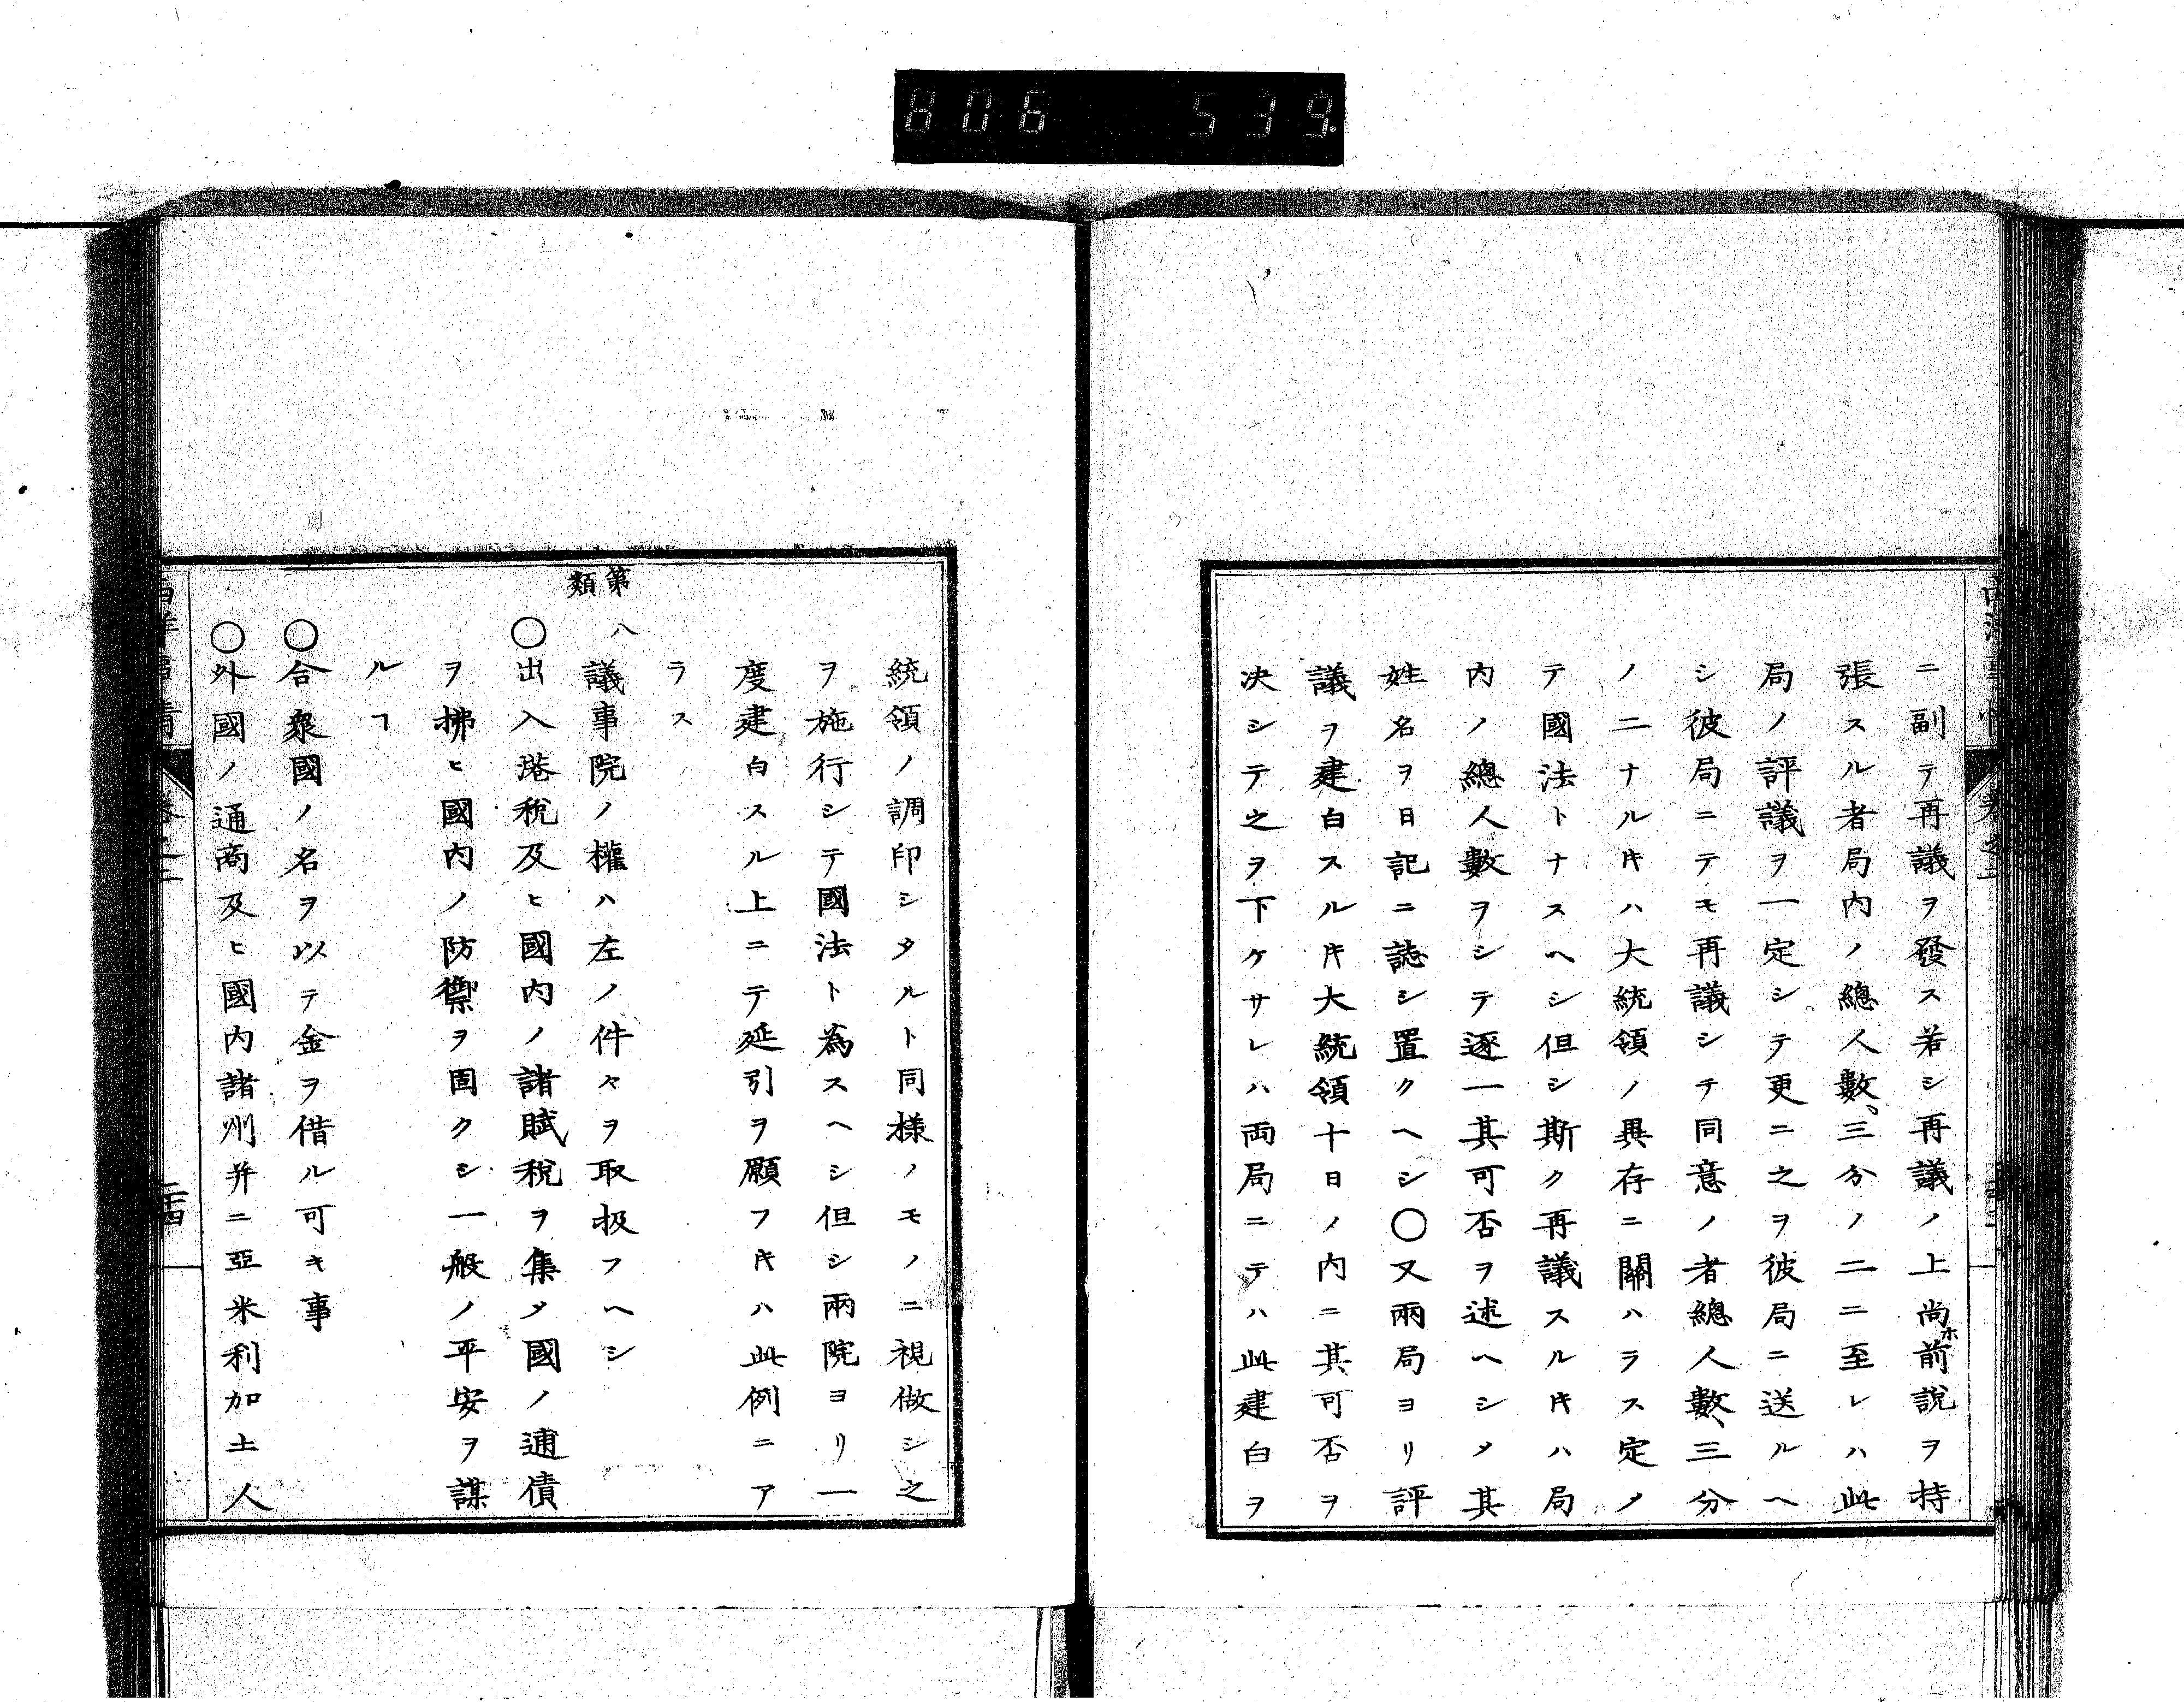 806 539
ニ副テ再議ヲ發ス若シ再議ノ上尚ホ前說ヲ持
張スル者局内ノ總人數、三分ノ二ニ至レハ此
局ノ評議ヲ一定シテ更ニ之ヲ彼局ニ送ルヘ
シ彼局ニテモ再議シテ同意ノ者總人數、三分
ノ二ナルキハ大統領ノ異存ニ關ハラス定ノ
テ國法トナスヘシ但シ斯ク再議スルキハ局
内ノ總人數ヲシテ逐一其可否ヲ述ヘシメ其
姓名ヲ日記ニ誌シ置クヘシ〇又兩局ヨリ評
議ヲ建白スル𪜈大統領十日ノ内ニ其可否ヲ
决シテ之ヲ下ケサレハ両局ニテハ此建白ヲ
統領ノ調印シタルト同樣ノモノニ視做シ之
ヲ施行シテ國法ト為スヘシ但シ兩院ヨリ一
度建白スル上ニテ延引ヲ願フキハ此例ニア
ラス
第八類
議事院ノ權ハ左ノ件々ヲ取扱フヘシ
〇出入港稅及ヒ國内ノ諸賦稅ヲ集メ國ノ逋債
ヲ拂ヒ國内ノ防禦ヲ固クシ一般ノ平安ヲ謀
ルヿ
〇合衆國ノ名ヲ以テ金ヲ借ル可キ事
〇外國ノ通商及ヒ國内諸州并ニ亞米利加土人